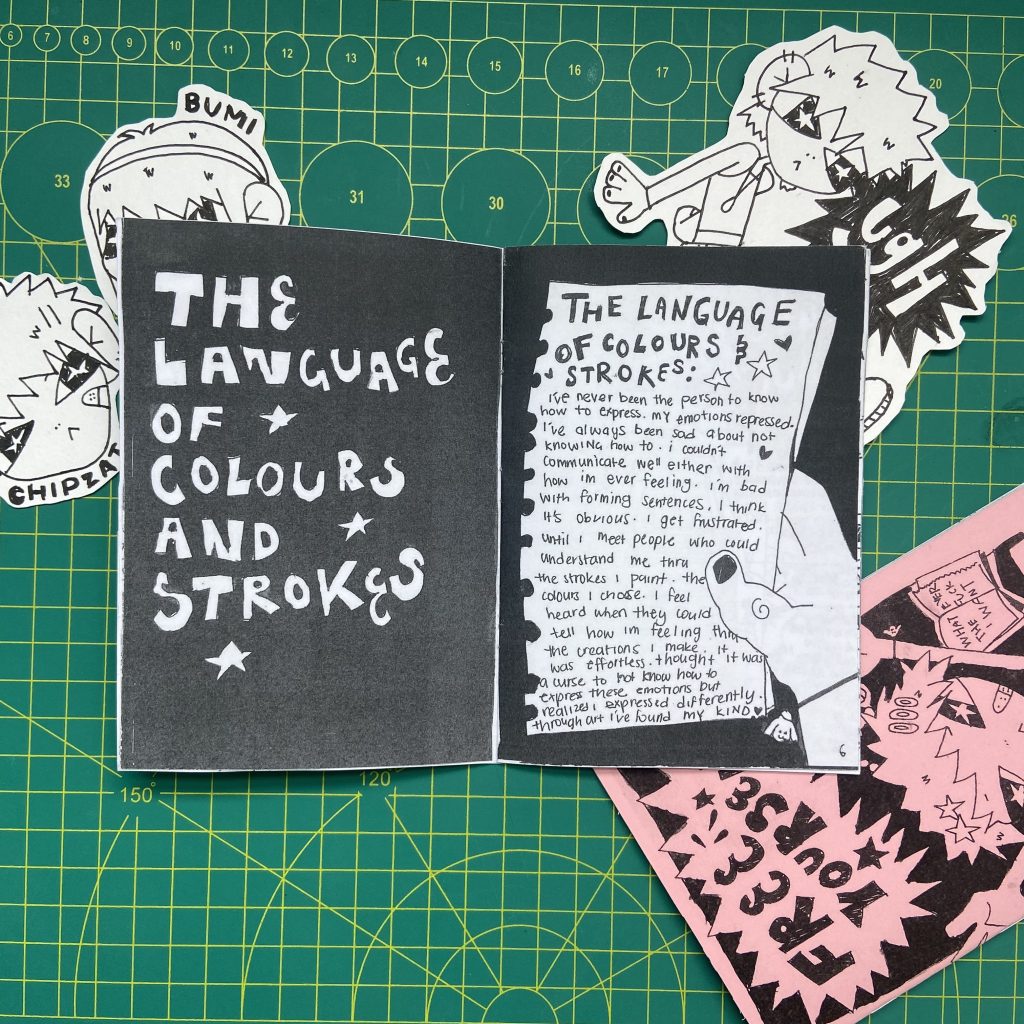 6 7 8 9 10 11 12 13 14 15 16 17 20
33 31 30 26
BUMI
ugh
CHIPZAT
THE
LANGUAGE
OF
COLOURS
AND
STROKES
THE LANGUAGE
OF COLOURS &
STROKES:
I've never been the person to know
how to express. my emotions repressed.
I've always been sad about not
knowing how to. i couldn't
communicate well either with
how im ever feeling. i'm bad
with forming sentences. I think
it's obvious. I get frustrated.
until i meet people who could
understand me thru
the strokes I paint. the
colours i choose. I feel
heard when they could
tell how im feeling thru
the creations I make. it
was effortless. thought it was
a curse to not know how to
express these emotions but
realized i expressed differently.
through art I've found my KIND
6
150° 120
WHAT
THE FUCK
I WANT
FR33
YOURS3